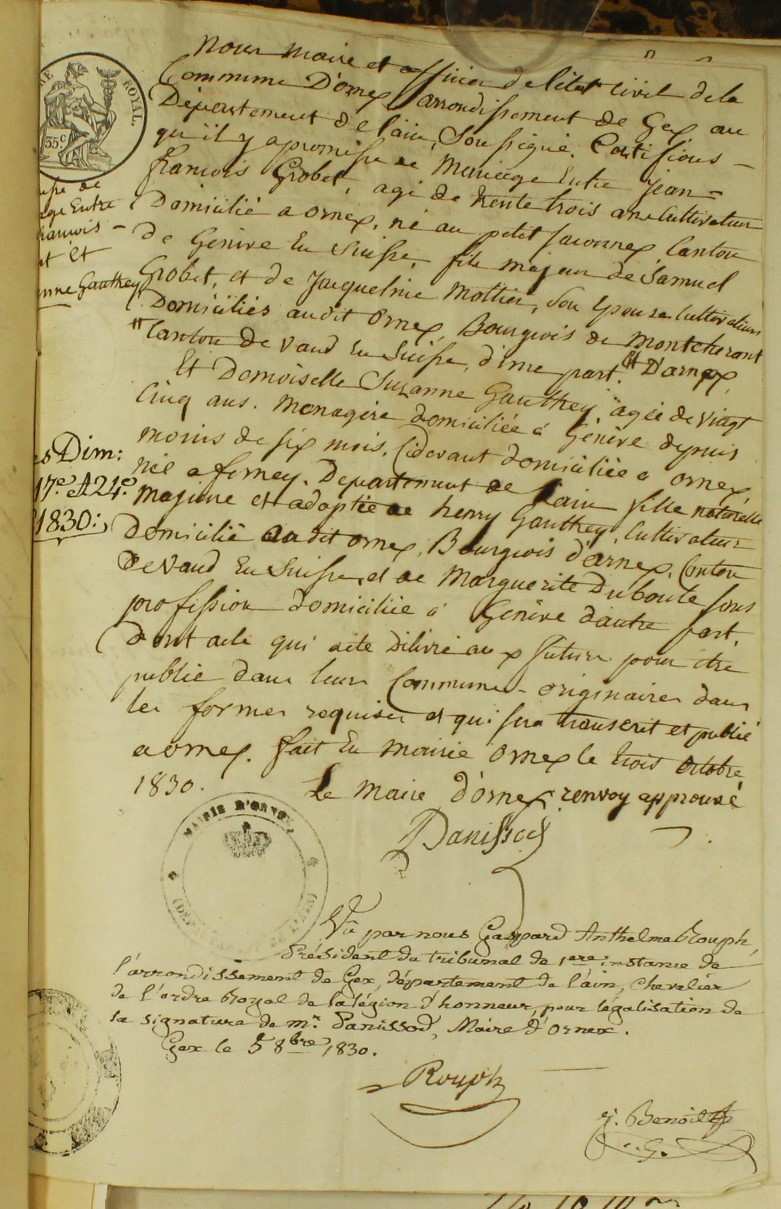 Nous Maire et officier de l'état civil de la
Commune D'ornex arrondissement de Gex au
Département de l'ain, Soussigné. Certifions
qu'il y a promesse de Mariage Entre Jean-
francois Grobet, agé de trente trois ans Cultivateur
Domicilié a ornex, né au petit saconnex, Canton
de Genève En Suisse, fils majeur de Samuel
Grobet, et de Jacqueline Mottier, son Epouse Cultivateurs
Domiciliés audit Ornex, Bourgeois de Montcherant
Canton de Vaud En Suisse, d'une part. D'arnex
Et Demoiselle Suzanne Gauthey, agée de vingt
Cinq ans. Menagère domiciliée à Genève depuis
moins de six mois. Cidevant domiciliée a ornex,
née a ferney. Departement de l'ain fille naturelle
majeure et adoptée de henry Gauthey, Cultivateur
Domicilié audit ornex, Bourgeois d'arnex, Canton
de Vaud En Suisse, et de Marguerite Duboule sans
profession domiciliée à Genève d'autre part.
Dont acte qui a été Délivré aux futurs pour être
publié dans leurs Communes originaires dans
les formes requises et qui sera transcrit et publié
a ornex. fait En Mairie Ornex le trois Octobre
1830. Le Maire d'ornex. renvoy approuvé
Panissod
MAIRIE D'ORNEX
ROYAL.
35c
de
age Entre
francois
et
anne Gauthey
Dim:
17e. et 24e.
1830:
Vu par nous Gaspard Anthelme Rouph,
Président du tribunal de 1ere instance de
l'arrondissement de Gex, département de l'ain, Chevalier
de l'ordre Royal de la légion d'honneur, pour légalisation de
la signature de mr. Panissod, Maire d'Ornex.
Gex le 5 8bre. 1830.
Rouph
j. Benoit